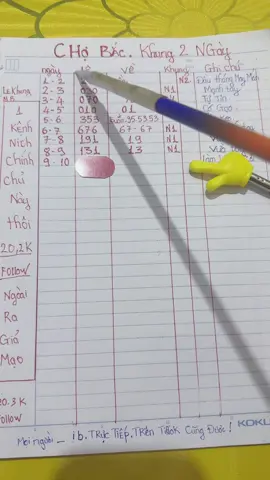 CHợ BắC. Khung 2 NGày
Ngày Lô Về Khung Ghi chú
1 - 2 N2 Đầu tháng May Mắn
2 - 3 030 N1
3 - 4 070 Tự Tin
4 - 5 010 01 Cố Gắng
5 - 6 353 35.53.53
6 - 7 676 67 - 67 N1
7 - 8 191 19 N1
8 - 9 131 13 N1
9 - 10
1
Kênh
Ních
Chính
chủ
Này
thôi
20,2K
Follow
Ngoài
Ra
Giả
Mạo
20.3K
Follow
Mọi người _ ib. Trực Tiếp. Trên TikTok Cũng Được !
KOKU